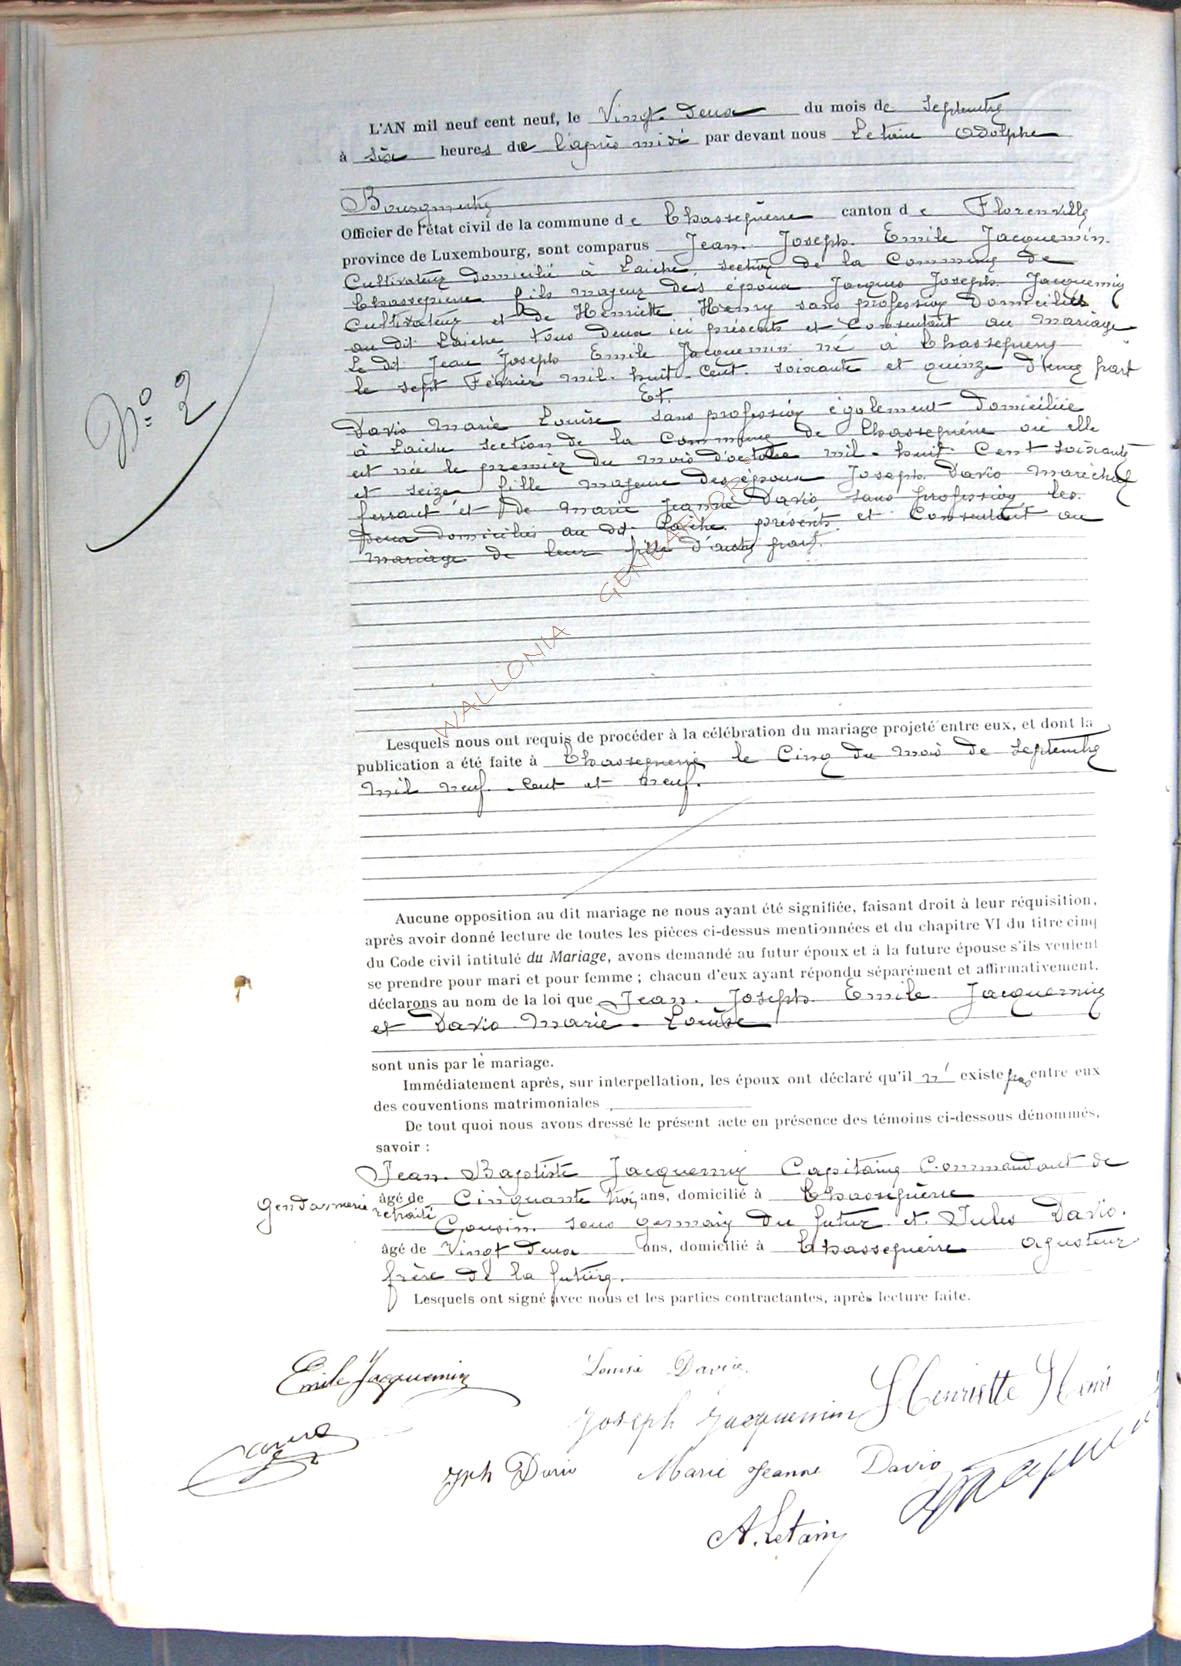 L'AN mil neuf cent neuf, le Vingt-Deux du mois de Septembre
à six heures de l'après midi par devant nous Letain Adolphe
Bourgmestre
Officier de l'état civil de la commune de Chassepierre canton de Florenville
province de Luxembourg, sont comparus Jean. Joseph. Emile Jacquemin.
Cultivateur domicilié à Laiche, section de la Commune de
Chassepierre fils majeur des époux Jacques Joseph. Jacquemin
Cultivateur et de Henriette Henry sans profession domiciliés
au dit Laiche tous deux ici présents et consentant au mariage
Le dit Jean Joseph Emile Jacquemin né à Chassepierre
le sept Février mil-huit-cent. soixante et quinze d'une part
Et.
Davio Marie Louise sans profession également domiciliée
à Laiche section de la Commune de Chassepierre où elle
est née le premier du mois d'octobre mil-huit-Cent soixante
et seize fille majeure des époux Joseph. Davio Maréchal
ferrant et de Marie Jeanne Davio sans profession les
deux domiciliés au dit Laiche présents et consentant au
mariage de leur fille d'autre part.
Nº 2
WALLONIA GENEALOGY
Lesquels nous ont requis de procéder à la célébration du mariage projeté entre eux, et dont la
publication a été faite à Chassepierre le Cinq du mois de Septembre
mil neuf-cent et neuf.
Aucune opposition au dit mariage ne nous ayant été signifiée, faisant droit à leur réquisition,
après avoir donné lecture de toutes les pièces ci-dessus mentionnées et du chapitre VI du titre cinq
du Code civil intitulé du Mariage, avons demandé au futur époux et à la future épouse s'ils veulent
se prendre pour mari et pour femme ; chacun d'eux ayant répondu séparément et affirmativement,
déclarons au nom de la loi que Jean. Joseph. Emile Jacquemin
et Davio Marie-Louise
sont unis par le mariage.
Immédiatement après, sur interpellation, les époux ont déclaré qu'il n' existe pas entre eux
des conventions matrimoniales
De tout quoi nous avons dressé le présent acte en présence des témoins ci-dessous dénommés,
savoir :
Jean-Baptiste Jacquemin Capitaine Commandant de
Gendarmerie retraité âgé de Cinquante trois ans, domicilié à Chassepierre
Cousin sous germain du futur et. Jules Davio.
âgé de Vingt deux ans, domicilié à Chassepierre ajusteur
frère de la future.
Lesquels ont signé avec nous et les parties contractantes, après lecture faite.
Emile Jacquemin Louise Davio.
Joseph Jacquemin Henriette Henri
Jph Davio Marie Jeanne Davio
A. Letain